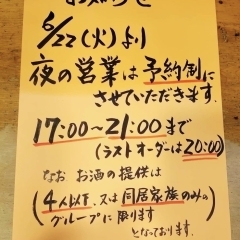 お知らせ
6/22(火)より
夜の営業は予約制に
させていただきます.
17:00〜21:00まで
(ラストオーダーは20:00)
なお お酒の提供は
(4人以下、又は同居家族のみの
グループに限ります
となっております.